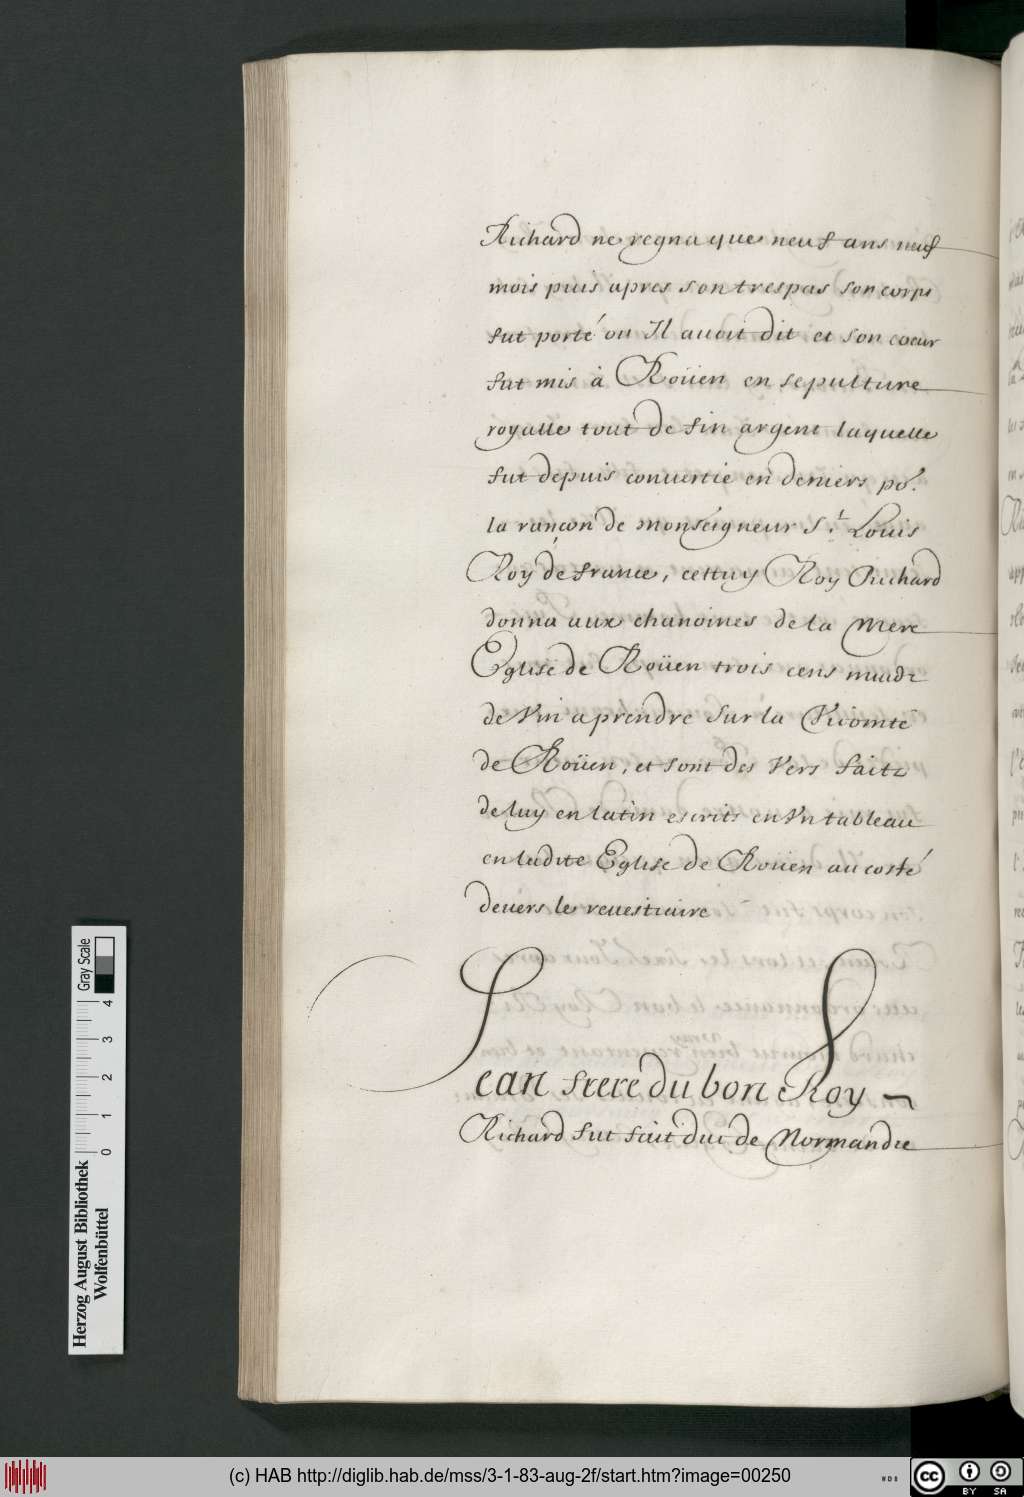 Richard ne regna que neuf ans neuf
mois puis apres son trespas son corps
fut porté ou Il auoit dit et son coeur
fut mis à Roüen en sepulture
royalle tout de fin argent laquelle
fut depuis conuertie en deniers po.r
la rançon de monseigneur S.t Louis
Roy de france, cettuy Roy Richard
donna aux chanoines de la Mere
Eglise de Roüen trois cens muidz
de Vin a prendre sur la Vicomté
de Roüen, et sont des Vers faitz
de luy en latin escrits en Vn tableau
en ladite Eglise de Roüen au costé
deuers le reuestiaire
Jean frere du bon Roy
Richard fut fait duc de Normandie
Herzog August Bibliothek
Wolfenbüttel
0 1 2 3 4
Gray Scale
(c) HAB http://diglib.hab.de/mss/3-1-83-aug-2f/start.htm?image=00250
WDB
cc
BY SA